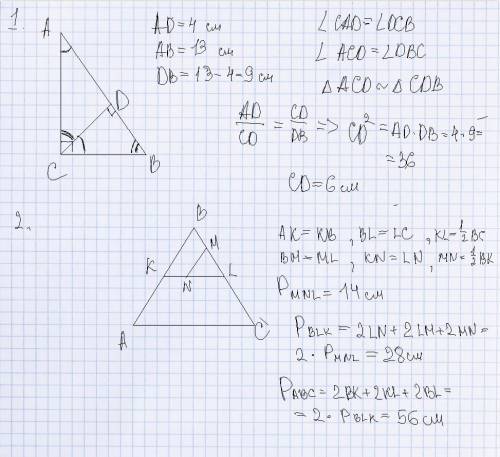 1.
A
D
C
B
AD = 4 см
AB = 13 см
DB = 13 - 4 - 9 см
∠CAD = ∠DCB
∠ACD = ∠DBC
△ACD ~ △CDB
AD/CD = CD/DB => CD² = AD·DB = 4·9 =
= 36
CD = 6 см
2.
B
M
K
N
L
A
C
AK = KB, BL = LC, KL = 1/2 BC
BM = ML, KN = LN, MN = 1/2 BK
P_MNL = 14 см
P_BLK = 2LN + 2LM + 2MN =
2 · P_MNL = 28 см
P_ABC = 2BK + 2KL + 2BL =
= 2 · P_BLK = 56 см